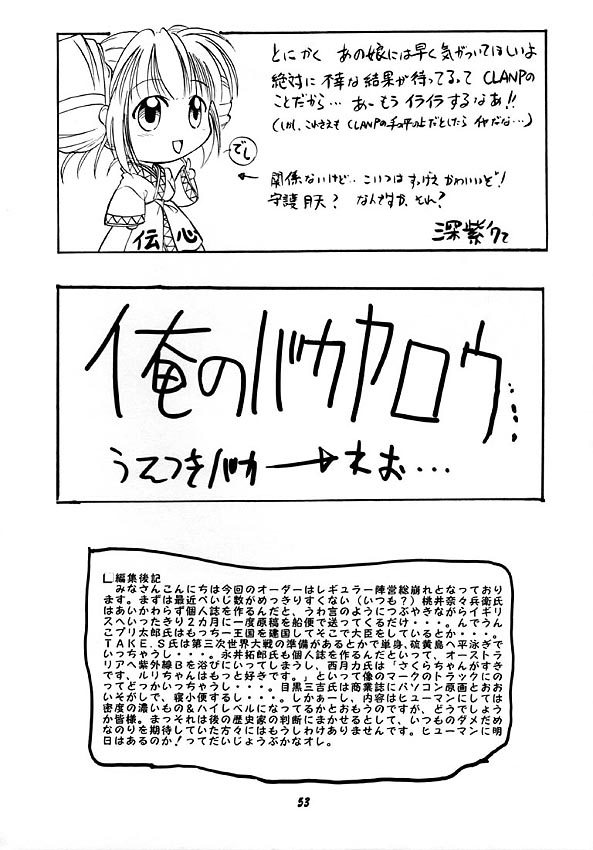 とにかく あの娘には早く気がついてほしいよ
絶対に不幸な結果が待ってるって CLANPの
ことだから… あーもう イライラするなあ!!
(しかし、これさえも CLANPの手の平の上だとしたら イヤだな…)
でし
← 関係ないけど… こいつは すっげえ かわいいぞ!
守護月天? なんですか、それ?
伝心
深紫
俺のバカヤロウ…
うえつきバカ→ えお…
編集後記
みなさんこんにちは今回のオーダーはレギュラー陣営総崩れとなっており
ます。まずは最近ページ数がめっきりすくない(いつも?)桃井奈々兵衛氏
はあいかわらず個人誌を作るんだと、うわ言のようにつぶやきながらイギリ
スへいったきり2カ月に一度原稿を船便で送ってくるだけ・・・。んでうん
こプリ太郎氏はもっちー王国を建国してそこで大臣をしているとか・・・。
TAKE.S氏は第三次世界大戦の準備があるとかで単身、硫黄島へ平泳ぎで
いっちゃうし・・・。永井拓郎氏も個人誌を作るんだといって、オーストラ
リアへ紫外線Bを浴びにいってしまうし、西月力氏は「さくらちゃんがすき
です、ルリちゃんはもっと好きです。」といって像のマークのトラックにの
ってどっかいっちゃうし・・・。目黒三吉氏は商業誌にパソコン原画とおお
いそがしで、寝小便するし・・・。しかぁーし、内容はヒューマンにしては
密度の濃いもの&ハイレベルになってるかとおもうのですが、どうでしょう
か皆様。まっそれは後の歴史家の判断にまかせるとして、いつものダメだめ
なのりを期待していた方々にはもうしわけありません。ヒューマンに明
日はあるのか!ってだいじょうぶかなオレ。
53